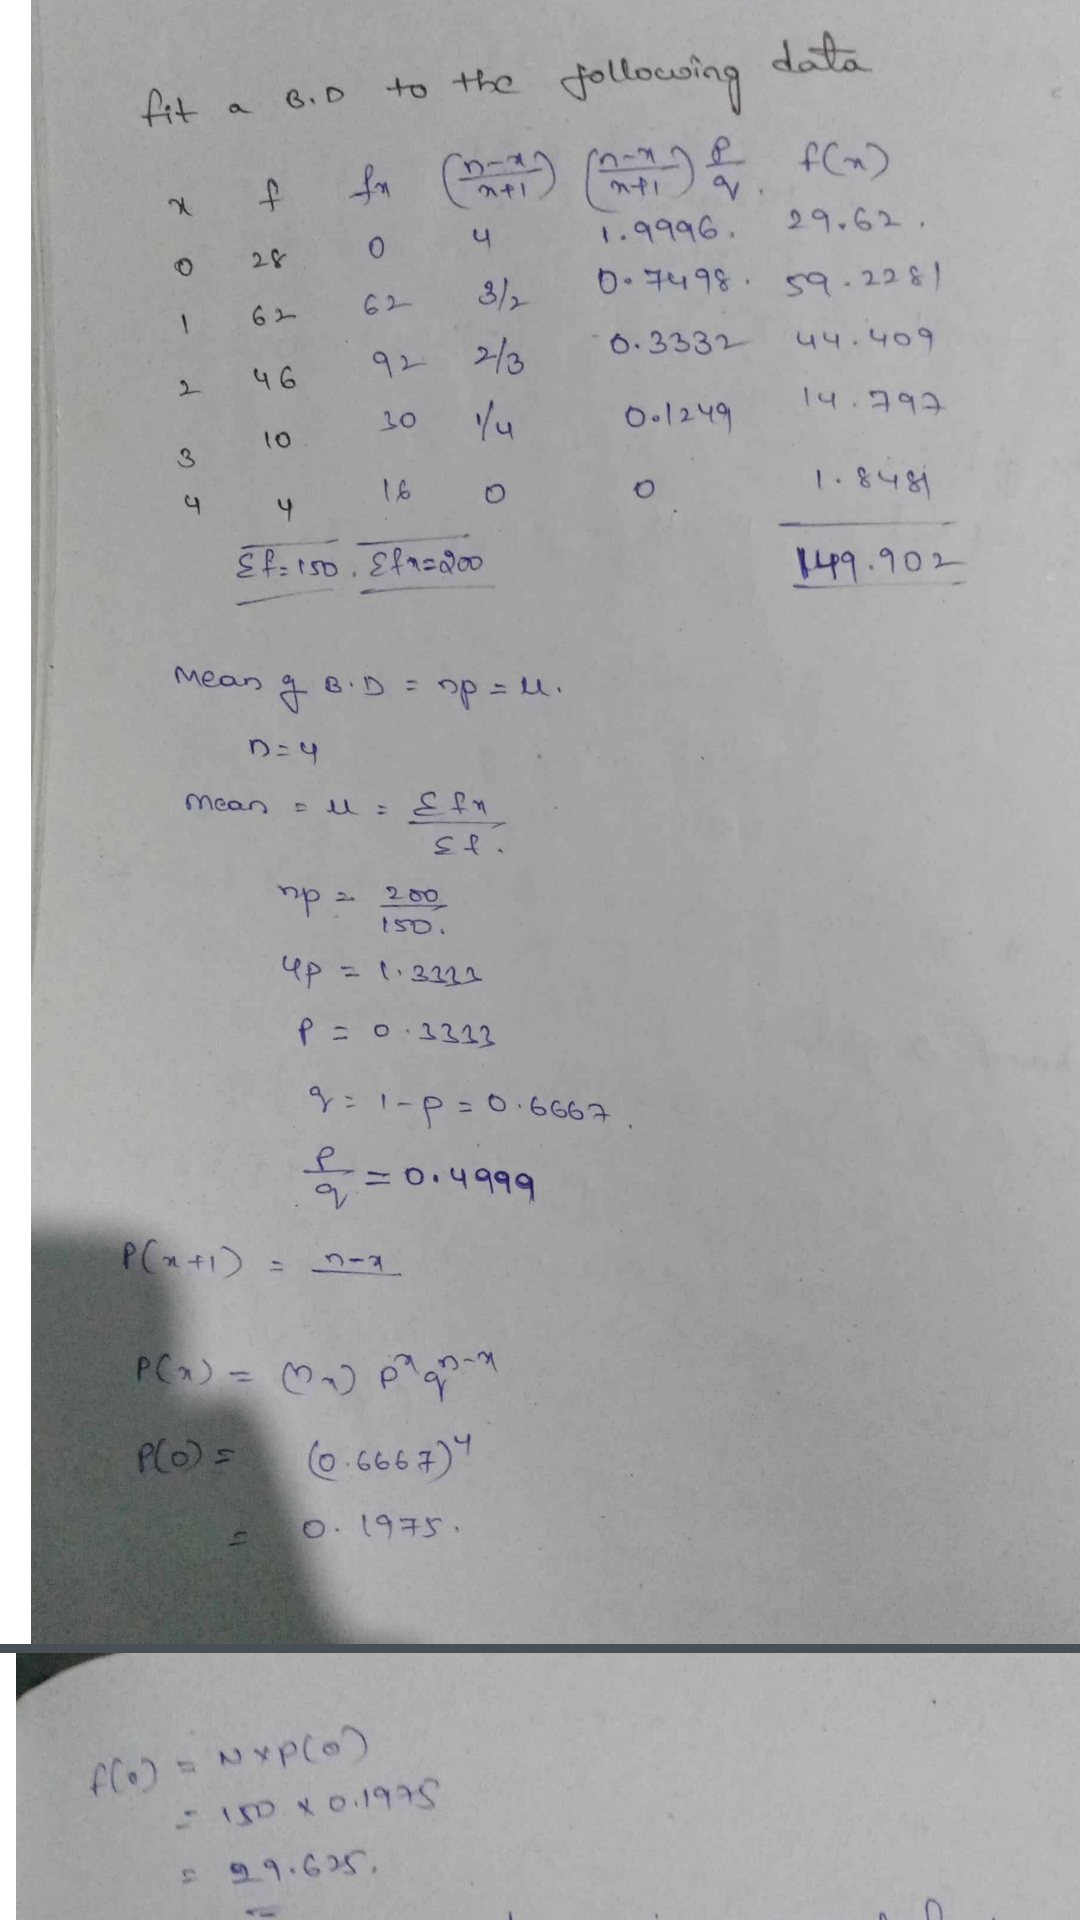 fit a B.D to the following data
x f fx (n-x/x+1) (n-x/x+1) p/q. f(x)
0 28 0 4 1.9996. 29.62.
1 62 62 3/2 0.7498. 59.2281
2 46 92 2/3 0.3332 44.409
3 10 30 1/4 0.1249 14.797
4 4 16 0 0 1.8481
Σf=150. Σfx=200 149.902
Mean of B.D = np = μ.
n=4
mean = μ = Σfx/Σf.
np = 200/150.
4p = 1.3333
P = 0.3333
q = 1-p = 0.6667.
p/q = 0.4999
P(x+1) = n-x
P(x) = (nx) p^x q^n-x
P(0) = (0.6667)^4
= 0.1975.
f(0) = N×P(0)
= 150 × 0.1975
= 29.625.